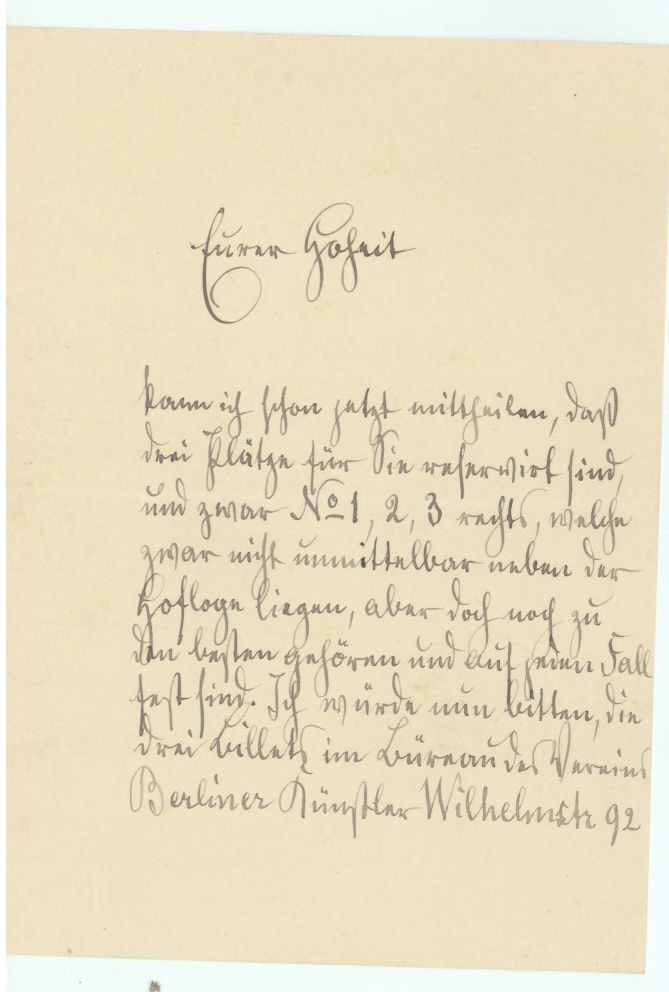 Eurer Hoheit
kann ich schon jetzt mittheilen, daß
drei Plätze für Sie reserwirt sind,
und zwar No 1, 2, 3 rechts, welche
zwar nicht unmittelbar neben der
Hofloge liegen, aber doch noch zu
den besten gehören und auf jeden Fall
fest sind. Ich würde nun bitten, die
drei Billets im Büreau des Vereins
Berliner Künstler Wilhelmstr 92